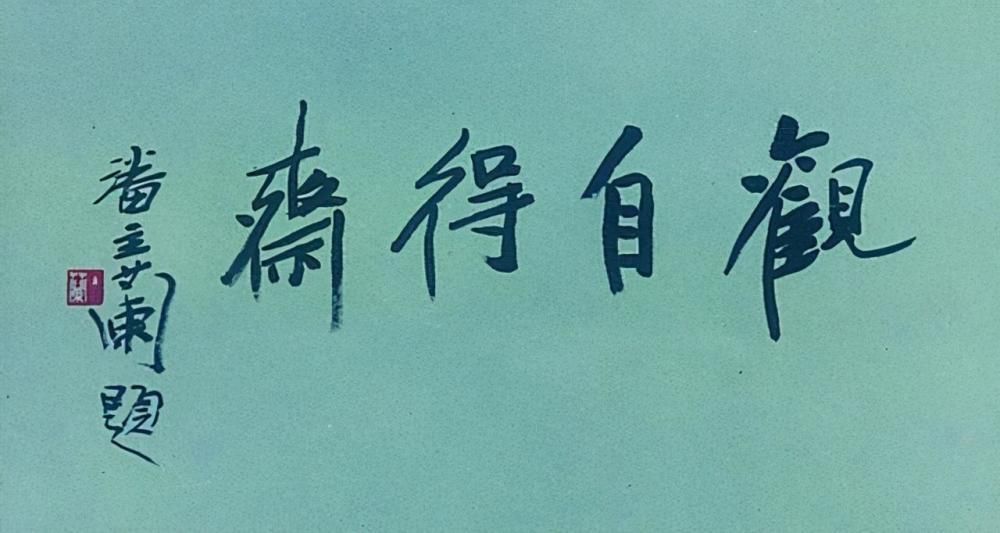 觀自得齋
潘主蘭題